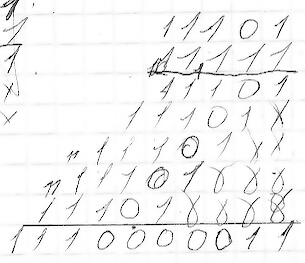 1 1 1 0 1
1 1 1 1 1
1 1 1 0 1
1 1 1 0 1 x
1 1 1 0 1 x x
1 1 1 0 1 x x x
1 1 1 0 1 x x x x
1 1 1 0 0 0 0 0 1 1